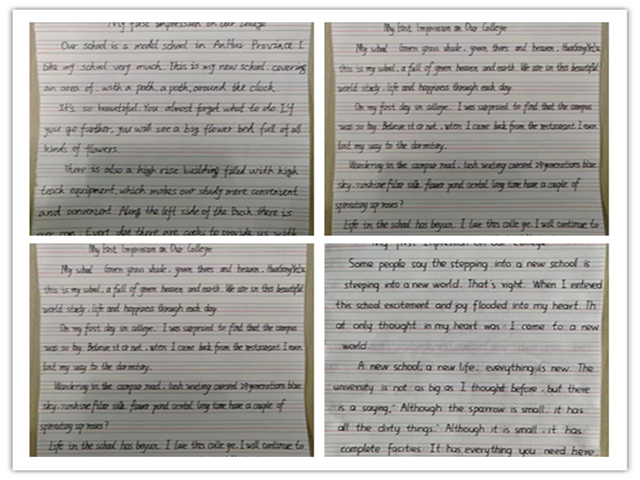 My first impression on our college
Our school is a model school in AnHui Province I
like my school very much. This is my new school. covering
an area of. with a path, a path, around the clock.
It's so beautiful. You almost forgot what to do. If
you go further, you will see a big flower bed full of all
kinds of flowers.
There is also a high rise building filled with high
teach equipment, which makes our study more convenient
and convenient Along the left side of the there is
our Every day there are to provide us with
My First Impression on Our College
My school Green grass green trees and heaven.
this is my school, a full of green heaven and earth. We are in this beautiful
world study, life and happiness through each day.
On my first day in college, I was surprised to find that the campus
was so big. Believe it or not, when I came back from the restaurant I even
lost my way to the dormitary.
Wandering in the campus road, lush blue
sky, sunshine filar silk, flower pond long time have a couple of
spouting up roses?
Life in the school has begun. I love this college. I will continue to
My First Impression on Our College
My school Green grass green trees and heaven.
this is my school, a full of green heaven and earth. We are in this beautiful
world study, life and happiness through each day.
On my first day in college, I was surprised to find that the campus
was so big. Believe it or not, when I came back from the restaurant I even
lost my way to the dormitary.
Wandering in the campus road, lush blue
sky, sunshine filar silk, flower pond long time have a couple of
spouting up roses?
Life in the school has begun. I love this college. I will continue to
My first impression on our college
Some people say the stepping into a new school is
steeping into a new world. That's right. When I entered
this school excitement and joy flooded into my heart. Th
at only thought in my heart was: I came to a new
world
A new school, a new life, everything is new. The
university is not as big as I thought before, but there
is a saying," Although the sparrow is small, it has
all the dirty things." Although it is small, it has
complete facities. It has everything you need here,